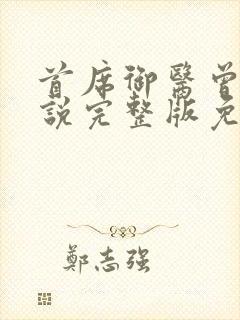 首席御醫曾
說完整版免
鄭志強